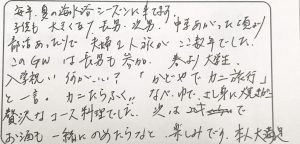 毎年、夏の海水浴シーズンに来てます
子供も大きくなり長男、次男、中学あがった頃より
部活あったりで夫婦2人旅がここ数年でした。
このGWは長男も参加。春より大学生。
入学祝い何がいい?「かどやでカニ旅行」
と一言。カニたらふく、なべ、ゆで、さし身に焼きがに
贅沢なコース料理でした。次は
お酒も一緒にのめたらなと楽しみです。本人大満足